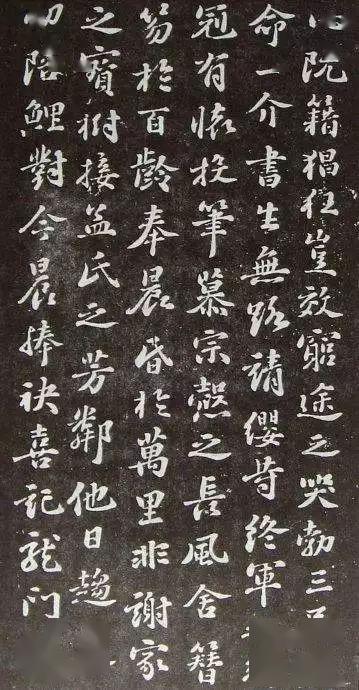 阮籍猖狂豈效窮途之哭勃三
命一介書生無路請纓等終軍
冠有懷投筆慕宗愨之長風舍簪
笏於百齡奉晨昏於萬里非謝家
之寶樹接孟氏之芳鄰他日趨
叨陪鯉對今晨捧袂喜託龍門